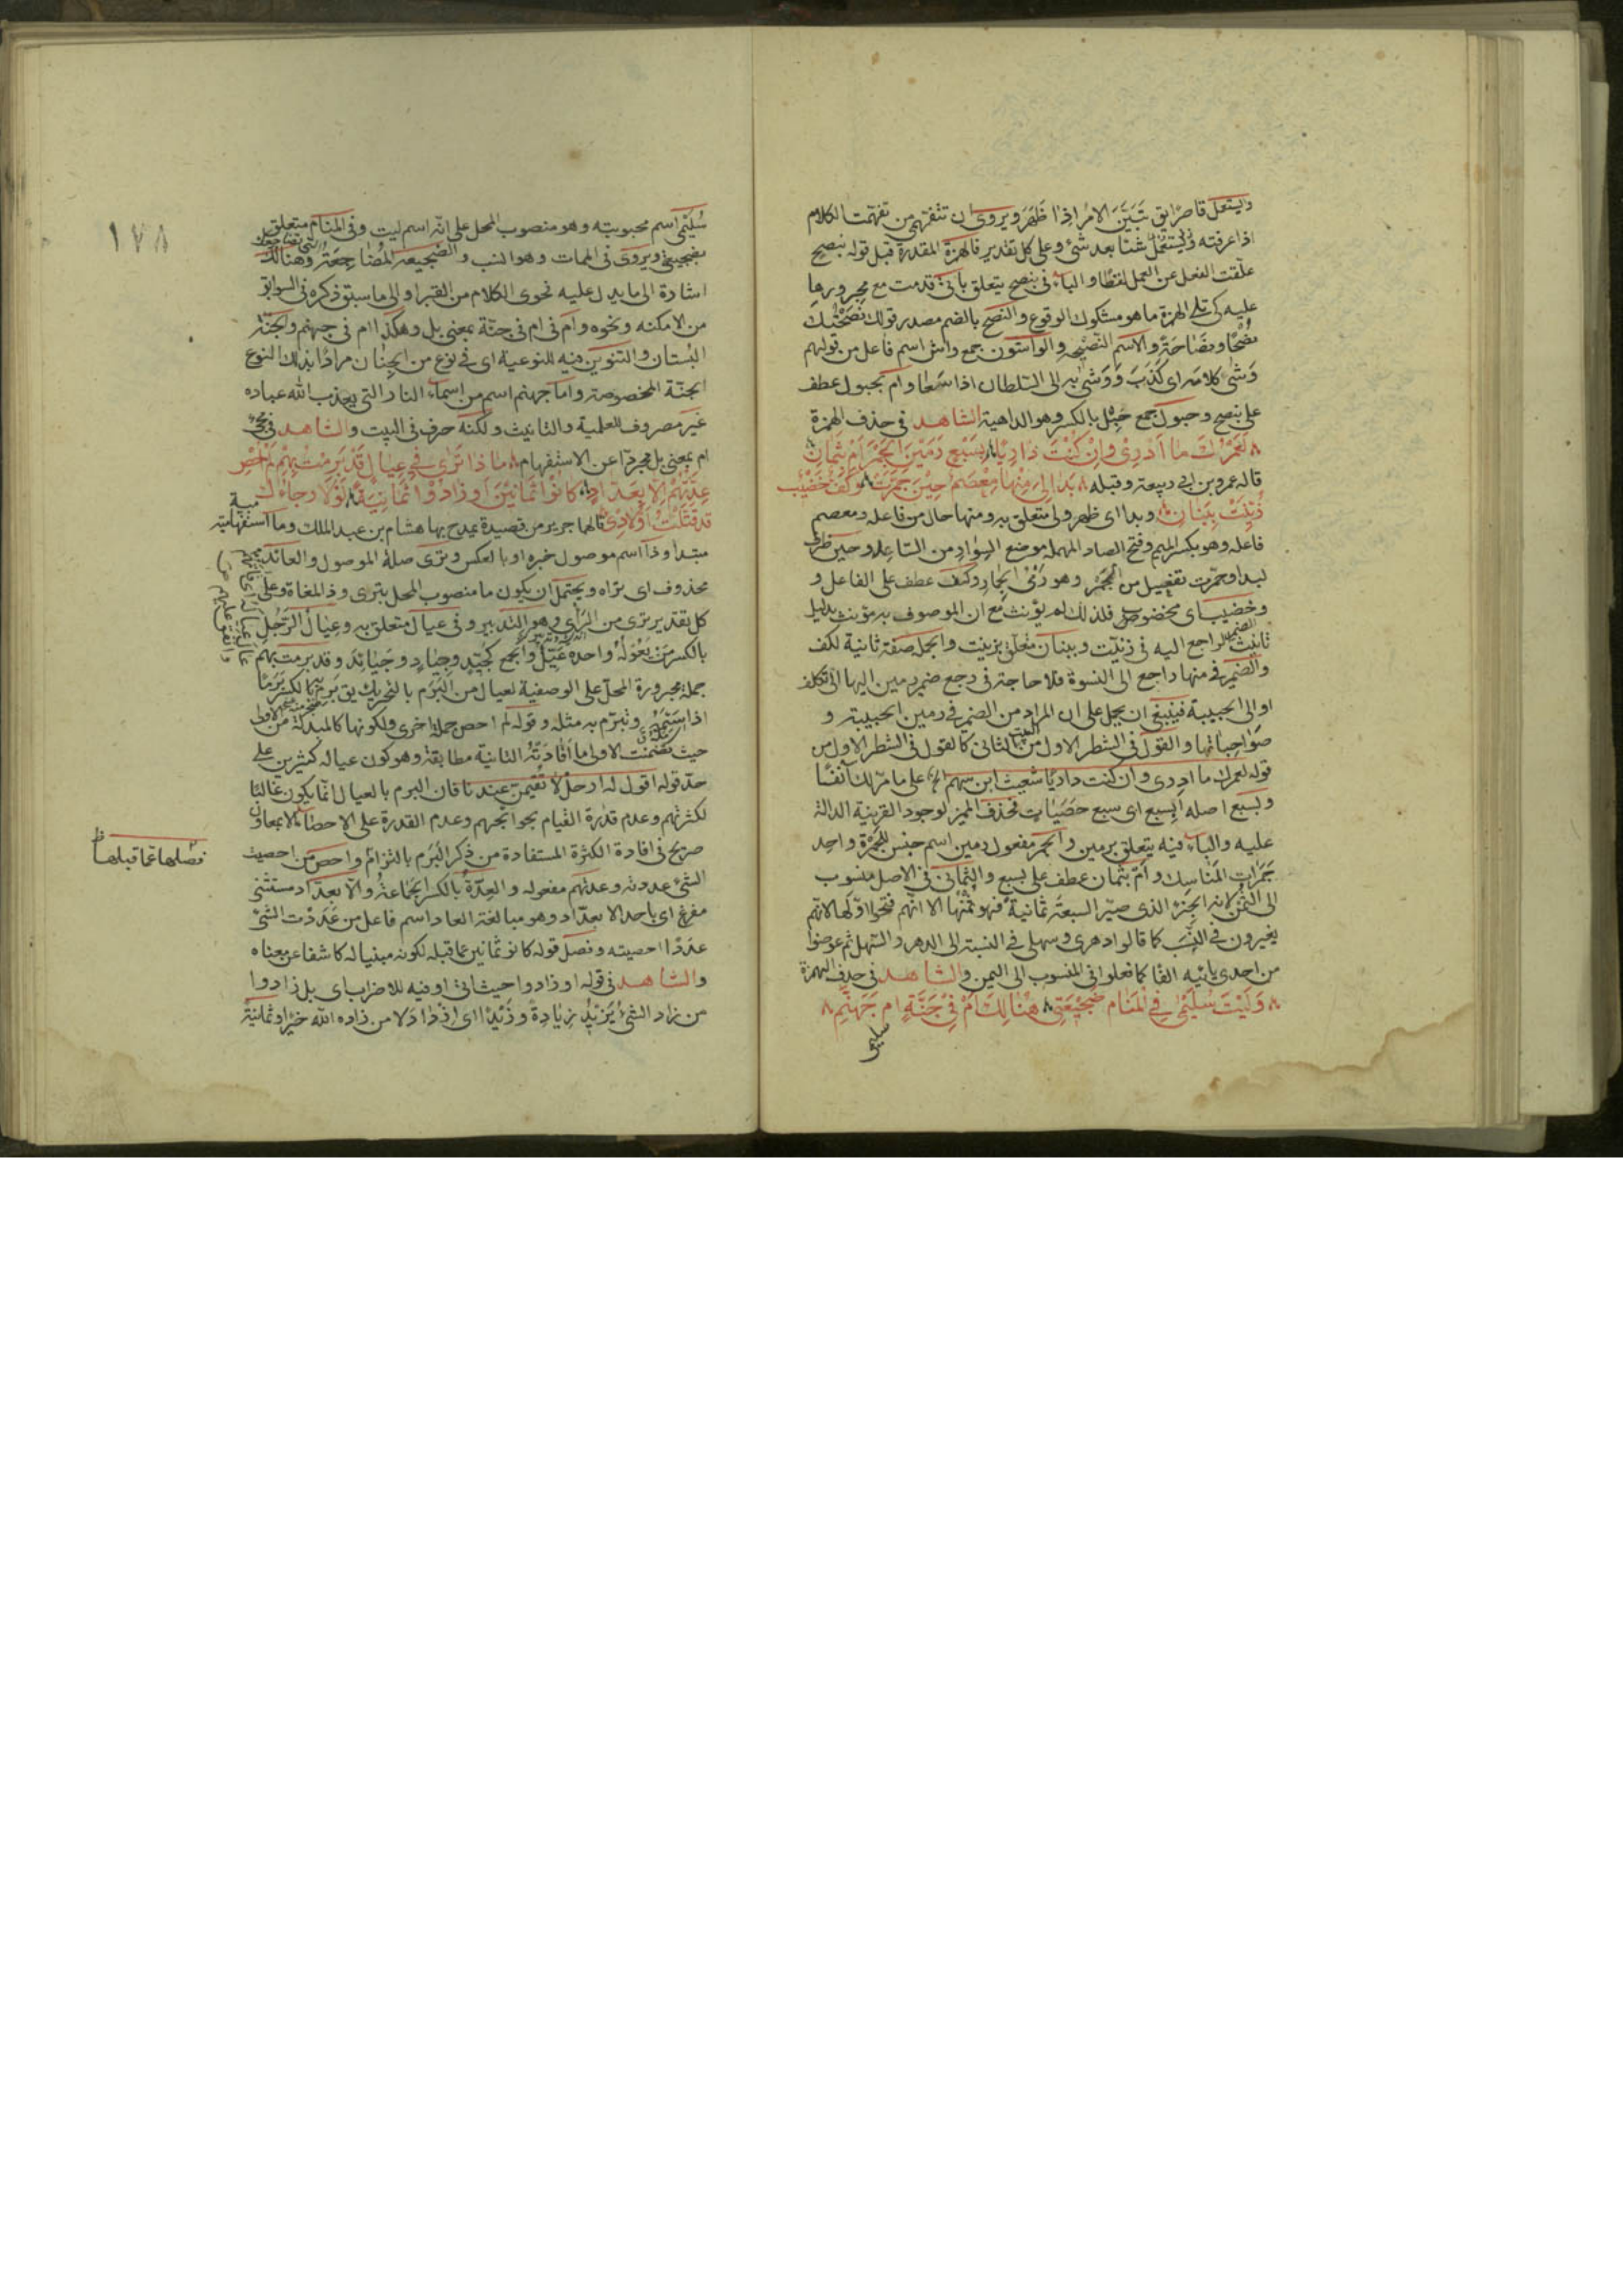 ويستعمل قاصرا يق تبين الامر اذا ظهر ويروى ان تتفهمي من تفهمت الكلام
اذا عرفته ويستعمل شئا بعد شئ وعلى كل تقدير فالهمزة المقدرة قبل قوله بنصح
علقت الفعل عن العمل لفظا والباء في بنصح يتعلق باتى قدمت مع مجرورها
عليه كي تلي الهمزة ما هو مشكوك الوقوع والنصح بالضم مصدر قولك نصحتك
نصحا ونصاحة والاسم النصيحة والواشون جمع واش اسم فاعل من قولهم
وشى كلامه اى كذب ووشى به الى السلطان اذا سعا وام بحبول عطف
على بنصح وحبول جمع حبل بالكسر وهو الداهية الشاهد في حذف الهمزة
لعمرك ما ادرى وان كنت داريا بسبع رمين الجمر ام بثمان
قاله عمرو بن ابي ربيعة وقبله بدا لي منها معصم حين جمرت وكف خضيب
زينت ببنان وبدا اى ظهر ولي متعلق به ومنها حال من فاعله ومعصم
فاعله وهو بكسر الميم وفتح الصاد المهملة موضع السوار من الساعد وحين ظرف
لبدا وجمرت تفعيل من الجمر وهو رمى الجمار وكف عطف على الفاعل و
وخضيب اى مخضوب فلذلك لم يؤنث مع ان الموصوف به مؤنث بدليل
تانيث الضمير الراجع اليه في زينت وببنان متعلق بزينت والجملة صفة ثانية لكف
والضمير في منها راجع الى النسوة فلا حاجة في رجع ضمير رمين اليها الى تكلف
او الى الحبيبة فينبغي ان يحمل على ان المراد من الضمير في رمين الحبيبة و
صواحباتها والقول في الشطر الاول من البيت الثاني كالقول في الشطر الاول من
قوله لعمرك ما ادرى وان كنت داريا شعيث ابن سهم الخ على ما مر لك آنفا
وبسبع اصله ابسبع اى سبع حصيات فحذف المميز لوجود القرينة الدالة
عليه والباء فيه يتعلق برمين والجمر مفعول رمين اسم جنس للجمرة واحد
جمرات المناسك وام بثمان عطف على بسبع والثماني في الاصل منسوب
الى الثمن لانه الجزء الذى صير السبعة ثمانية فهو ثمنها الا انهم فتحوا اولها لانهم
يغيرون في النسب كما قالوا دهرى وسهلي في النسبة الى الدهر والسهل ثم عوضوا
من احدى يائيه الفا كما فعلوا في المنسوب الى اليمن والشاهد في حذف الهمزة
وليت سليمى في المنام ضجيعتي هنالك ام في جنة ام جهنم
سليمى
١٧٨
سليمى اسم محبوبته وهو منصوب المحل على انه اسم ليت وفي المنام متعلق
بضجيعتي ويروى في الممات وهو انسب والضجيعة المضاجعة وهنالك
اشارة الى ما يدل عليه فحوى الكلام من القبر او الى ما سبق ذكره في السوابق
من الامكنه ونحوه وام في ام في جنة بمعنى بل وهكذا ام في جهنم والجنة
البستان والتنوين فيه للنوعية اى في نوع من الجنان مرادا بذلك النوع
الجنة المخصوصة واما جهنم اسم من اسماء النار التي يعذب الله عباده
غير مصروف للعلمية والتانيث ولكنه حرف في البيت والشاهد في مجئ
ام بمعنى بل مجردا عن الاستفهام ما ذا ترى في عيال قد برمت بهم لم احص
عدتهم الا بعداد كانوا ثمانين او زادوا ثمانية لولا رجاؤك
قد قتلت اولادى قالهما جرير من قصيدة يمدح بها هشام بن عبد الملك وما استفهامية
مبتدا وذا اسم موصول خبره او بالعكس وترى صلة الموصول والعائد
محذوف اى تراه ويحتمل ان يكون ما منصوب المحل بترى وذا ملغاة وعلى
كل تقدير ترى من الراى وهو التدبير وفي عيال متعلق به وعيال الرجل
بالكسر من يعوله واحده عيل والجمع كجيد وجياد وجيائد وقد برمت بهم
جملة مجرورة المحل على الوصفية لعيال من البرم بالتحريك يق برم به بالكسر برما
اذا سئمه وتبرم به مثله وقوله لم احص جملة اخرى ولكونها كالمبدلة من
حيث تضمنت الاولى ما افادته الثانية مطابقة وهو كون عياله كثيرين على
حد قوله اقول له ارحل لا تقيمن عندنا فان البرم بالعيال انما يكون غالبا
لكثرتهم وعدم قدرة القيام بحوائجهم وعدم القدرة على الاحصاء الا بمعاون
صريح في افادة الكثرة المستفادة من ذكر البرم بالتزام واحص من احصيت
الشئ عددته وعدتهم مفعوله والعدة بالكسر الجماعة والا بعداد مستثنى
مفرغ اى باحد الا بعداد وهو مبالغة العاد اسم فاعل من عددت الشئ
عددا احصيته وفصل قوله كانوا ثمانين عما قبله لكونه مبنيا له كاشفا عن معناه
والشاهد في قوله او زادوا حيث اتى او فيه للاضراب اى بل زادوا
من زاد الشئ يزيد زيادة وزيدا اى ازداد لا من زاده الله خيرا وثمانية
فصلها عما قبلها